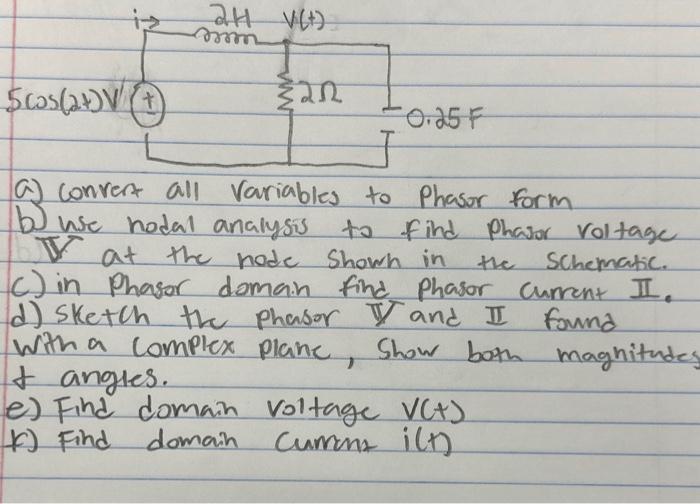 i→ 2H V(t)
5cos(2t)V + 2Ω 0.25F
a) convert all variables to phasor form
b) use nodal analysis to find phasor voltage
V at the node shown in the schematic.
c) in phasor domain find phasor current II.
d) sketch the phasor V and II found
with a complex plane, show both magnitudes
+ angles.
e) Find domain voltage V(t)
f) Find domain current i(t)